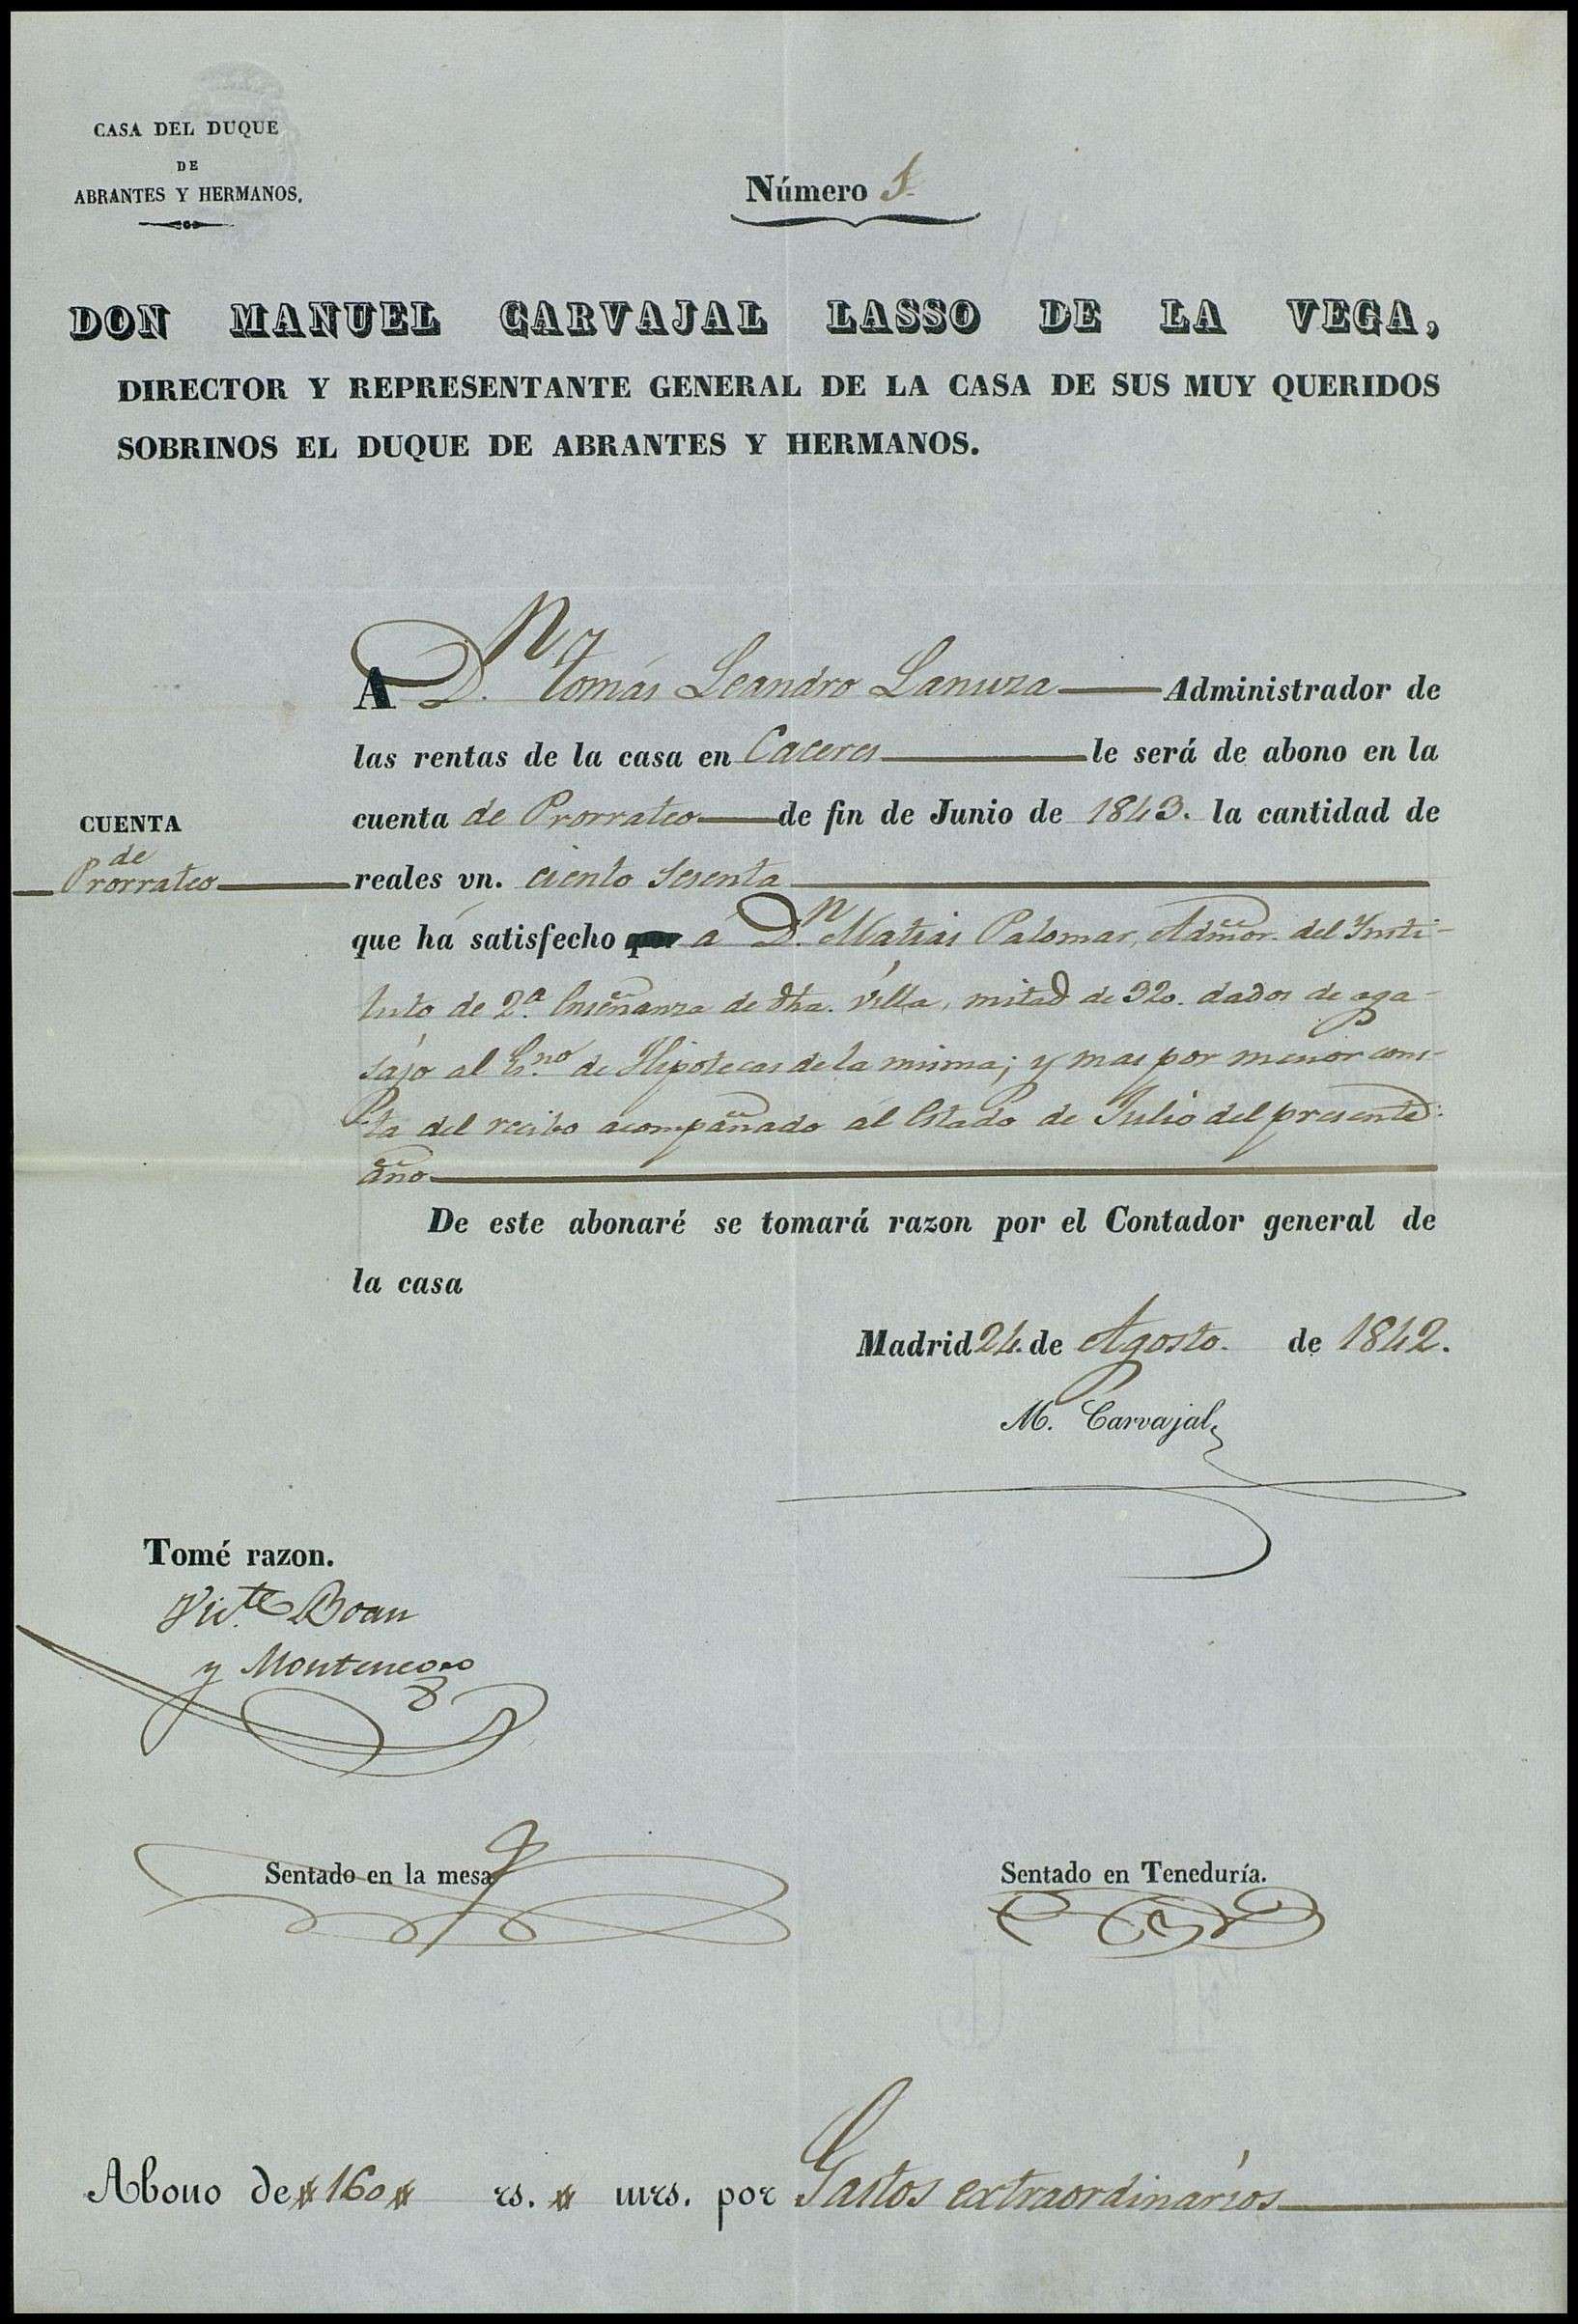 CASA DEL DUQUE
DE
ABRANTES Y HERMANOS.
Número 1
DON MANUEL CARVAJAL LASSO DE LA VEGA,
DIRECTOR Y REPRESENTANTE GENERAL DE LA CASA DE SUS MUY QUERIDOS
SOBRINOS EL DUQUE DE ABRANTES Y HERMANOS.
A D.n Tomás Leandro Lanuza Administrador de
las rentas de la casa en Caceres le será de abono en la
cuenta de Prorrateo de fin de Junio de 1843. la cantidad de
CUENTA
de
Prorrateo
reales vn. ciento sesenta
que há satisfecho á D.n Matias Palomar, Admor. del Insti-
tuto de 2.a Enseñanza de dha. villa, mitad de 320. dados de aga-
sajo al E.no de Hipotecas de la misma; y mas por menor cons-
ta del recibo acompañado al Estado de Julio del presente
año
De este abonaré se tomará razon por el Contador general de
la casa
Madrid 24. de Agosto. de 1842.
M. Carvajal
Tomé razon.
Vic.te Boan
y Montenegro
Sentado en la mesa
Sentado en Teneduría.
Abono de # 160 # rs. # mrs. por Gastos extraordinarios